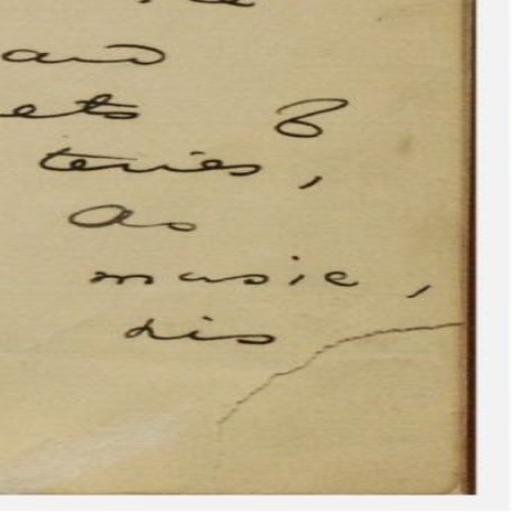 and
ets of
teries,
as
music,
his